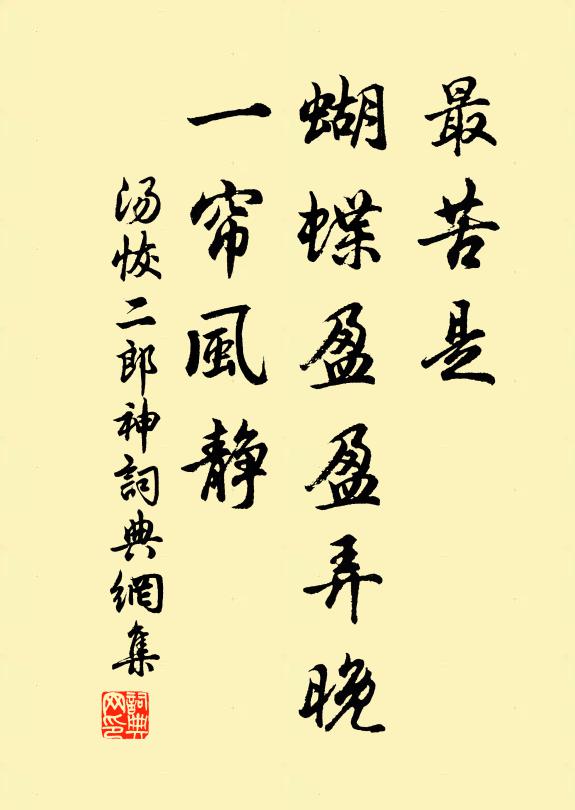 最苦是
蝴蝶盈盈弄晚
一帘風静
汤恢二郎神詞典網集
詞典网印